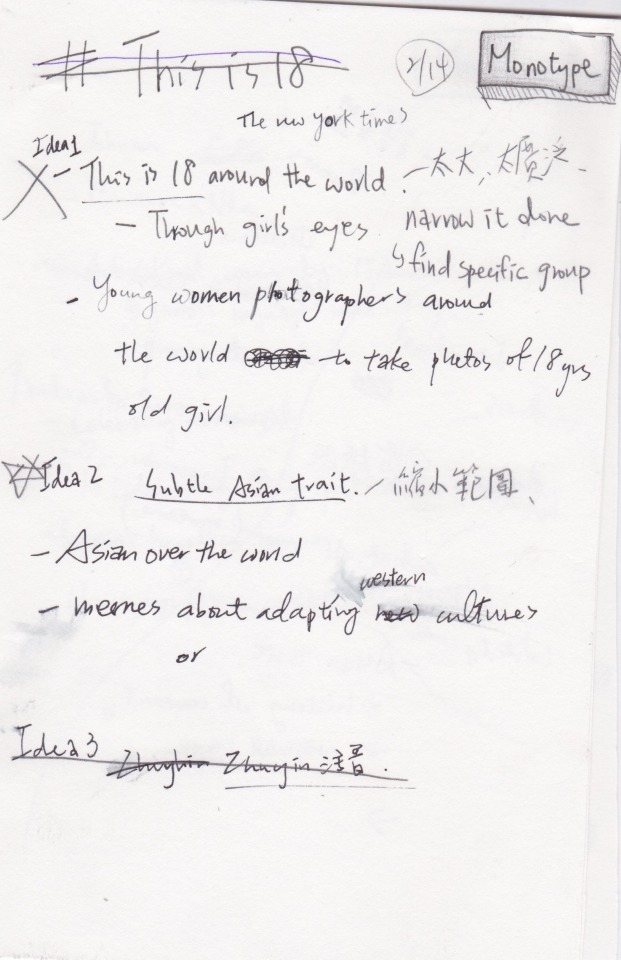 # This is 18
2/14
Monotype
The new york times
Idea 1
- This is 18 around the world. - 太大, 太廣泛.
- Through girl's eyes
narrow it done
↳ find specific group
- Young women photographers around
the world to take photos of 18 yrs
old girl.
Idea 2 Subtle Asian trait. / 縮小範圍、
- Asian over the world
- memes about adapting new cultures
western
or
Idea 3 Zhuyin 注音.